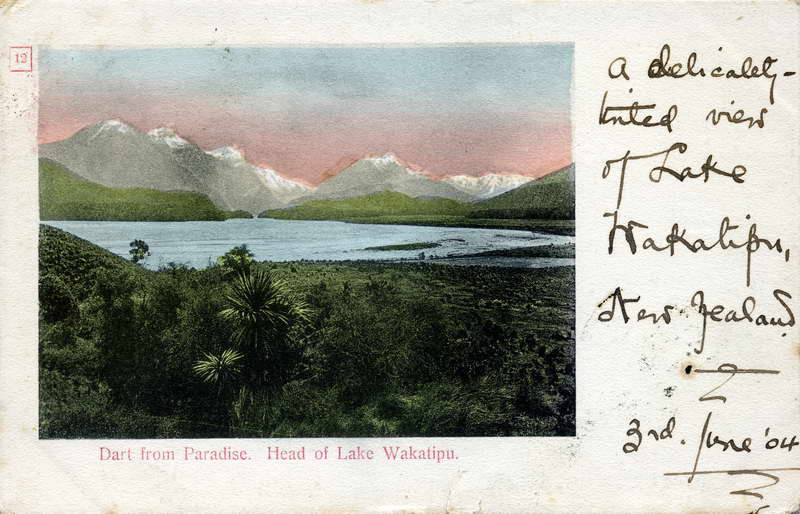 12
A delicately-
tinted view
of Lake
Wakatipu,
New Zealand
3rd. June '04
Dart from Paradise. Head of Lake Wakatipu.